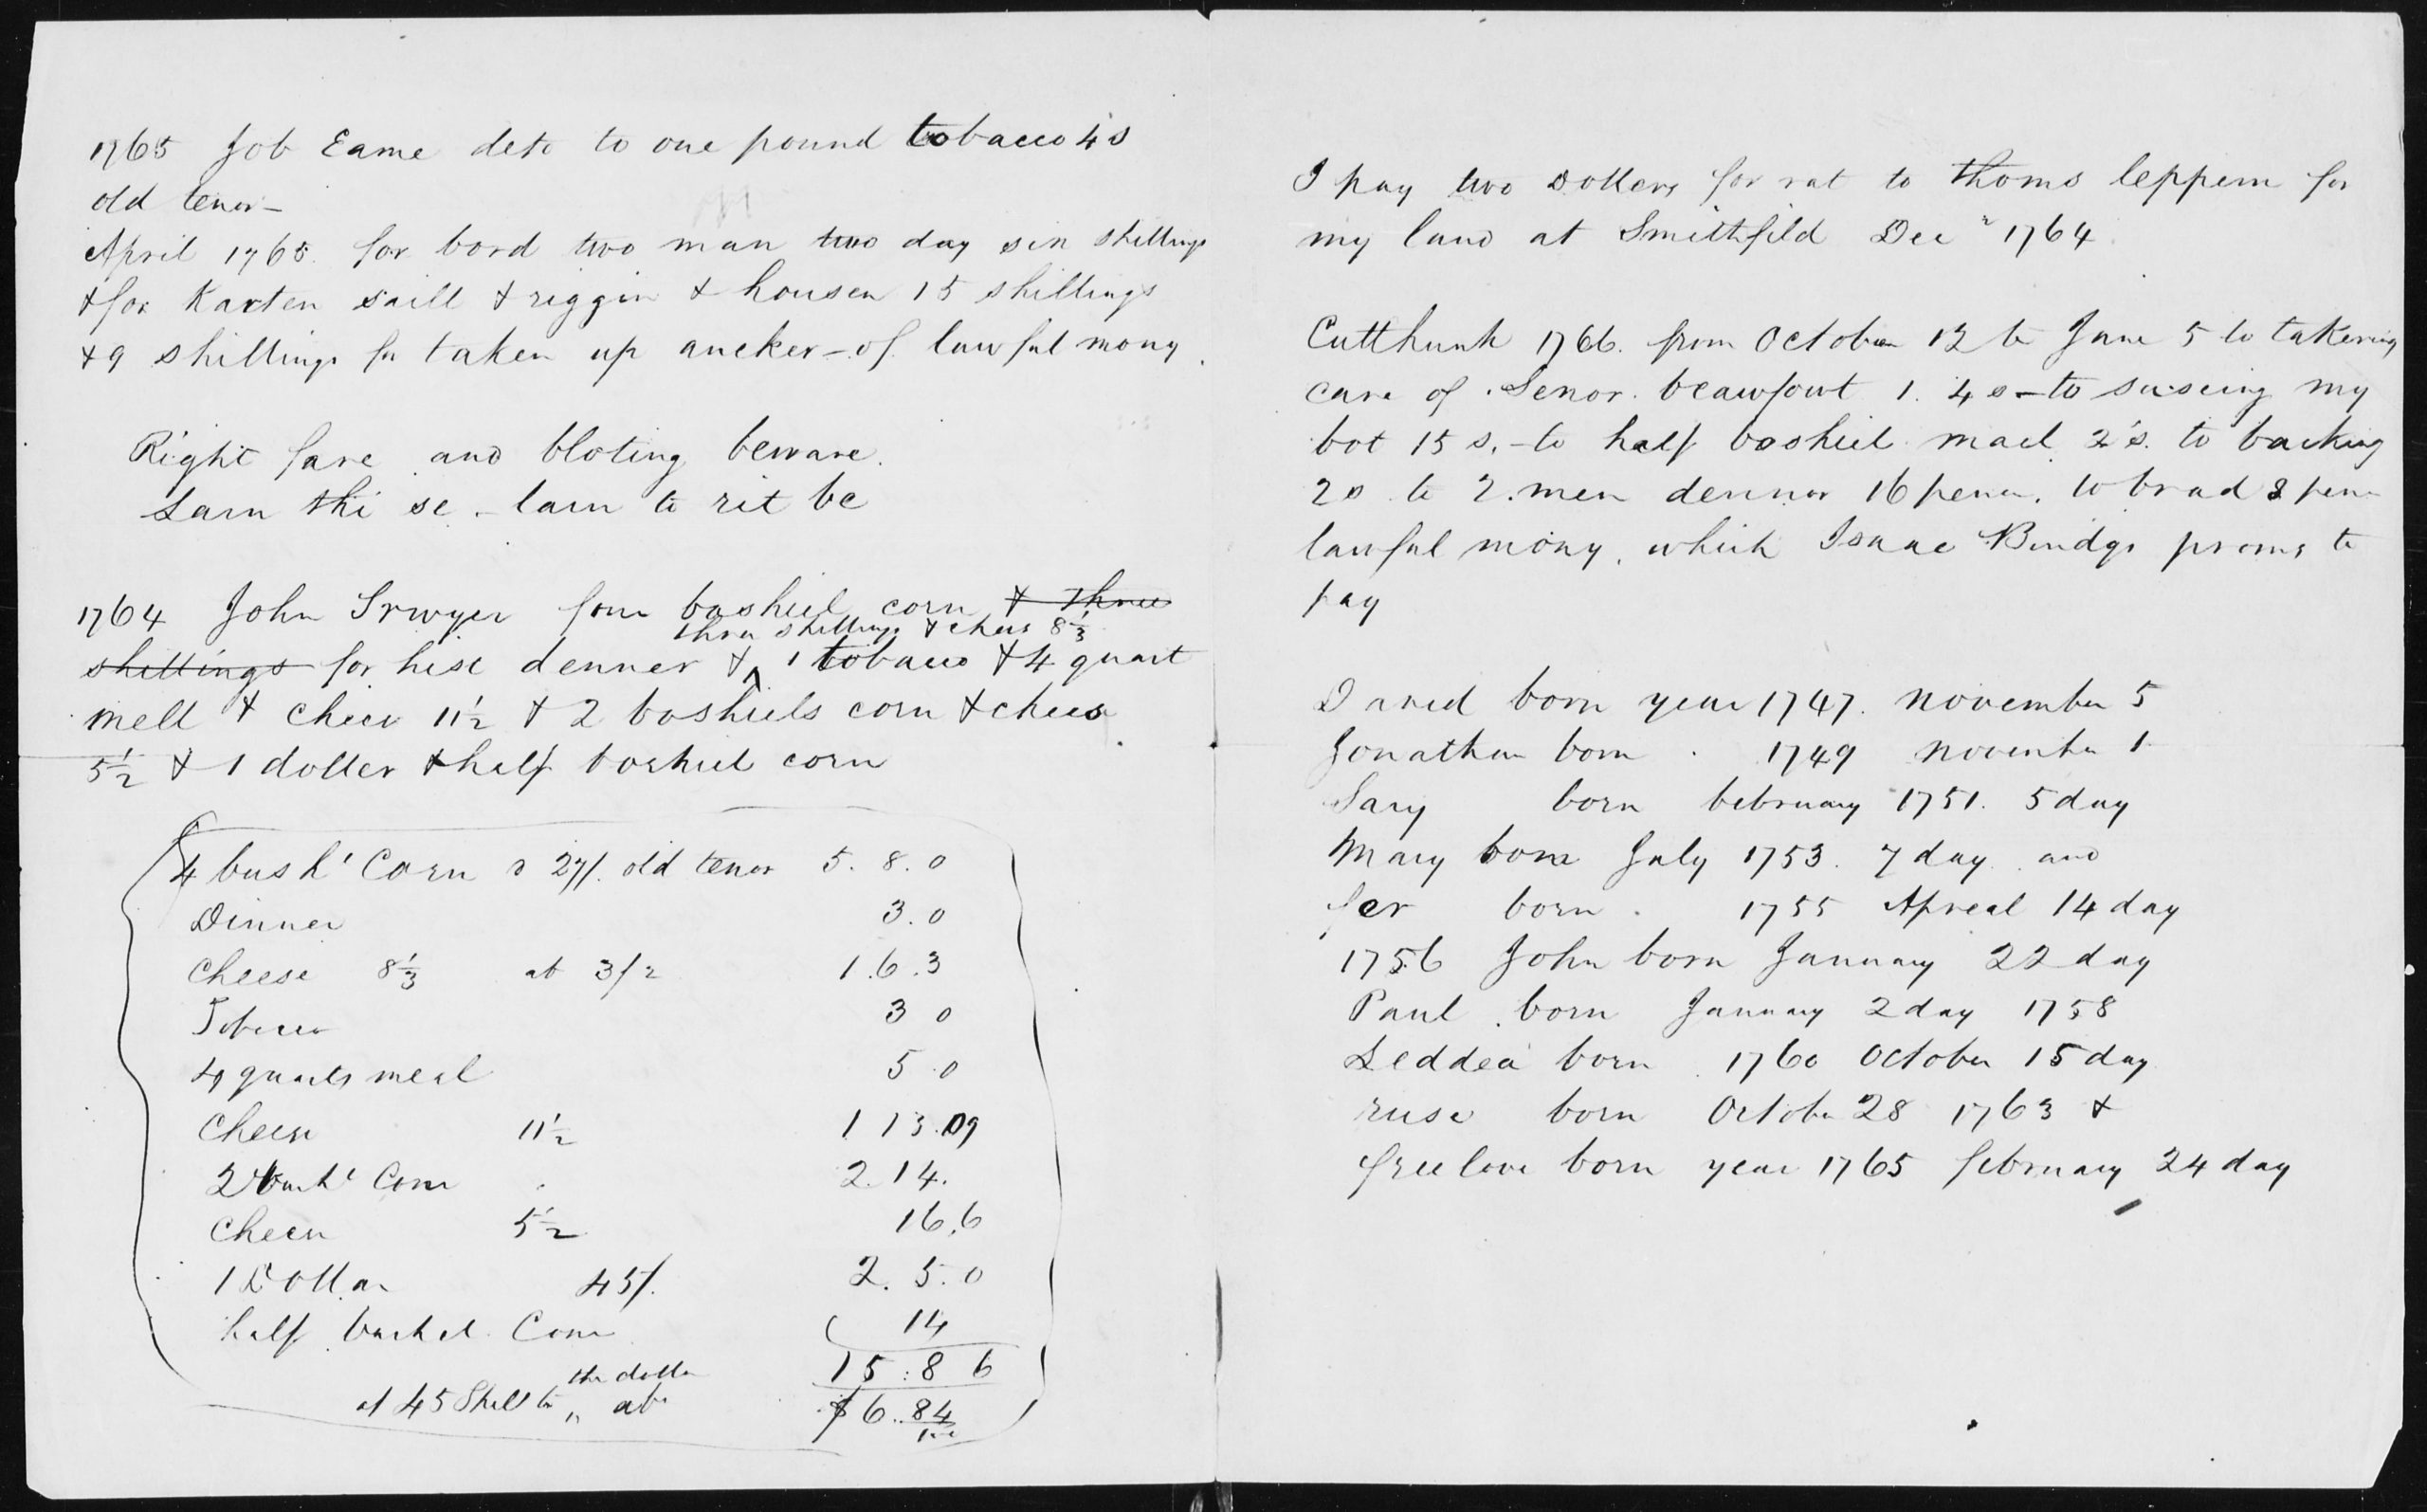 1765 Job Eame deto to one pound tobacco 4's
old tenor-
April 1765. for bord two man two day six shillings
+ for Karten saill + riggin + housen 15 shillings
+ 9 shillings for taken up ancker - of lawful mony.
Right fare and bloting beware.
Larn thi se - larn to rit be
1764 John Srwyer four boshiel corn + three
three shillings + chees 8⅓
shillings for hise denner + ‸ 1 tobacco + 4 quart
mell + chees 11½ + 2 boshiels corn + chees
5½ + 1 doller + half boshiel corn
4 bushl Corn a 27/. old tenor 5. 8. 0
Dinner 3. 0
Cheese 8⅓ at 3/2 1. 6. 3
Tobacco 3 0
4 quarts meal 5. 0
Cheese 11½ 1 13. 09
2 bushl Corn 2. 14.
Cheese 5½ 16.6
1 Dollar 45/. 2. 5. 0
half bushel Corn 14
the dollar 15 : 8 6
at 45 Shill to „ $6..84/100
I pay two Dollers for rat to thoms leppem for
my land at Smithfild Decr 1764.
Cutthunk 1766. from October 12 to Jane 5 to takering
care of Senor. beawfort 1. 4 s - to my
bot 15 s. - to half boshiel mael 2's. to backing
2s to 2. men dennor 16 penn. to brad 8 penn
lawful mony, which Isaac Bindgs proms to
pay
Dared born year 1747. november 5
Jonathan born . 1749 november 1
Sary born bebruary 1751. 5 day
Mary born July 1753. 7 day and
fer born . 1755 Apreal 14 day
1756 John born January 22 day
Paul born January 2 day 1758
Leddea born 1760 October 15 day
ruse born October 28 1763 +
freelove born year 1765 february 24 day